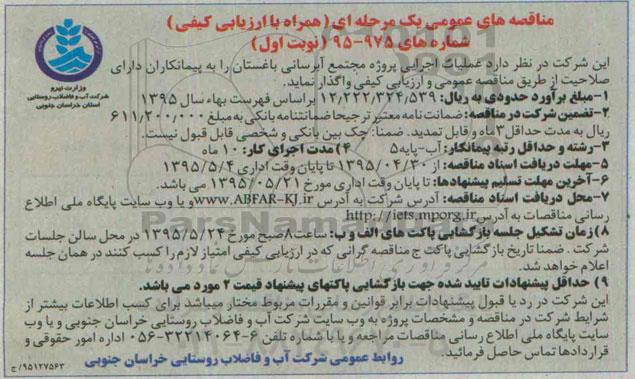 مناقصه های عمومی یک مرحله ای (همراه با ارزیابی کیفی)
شماره های ۹۷۵-۹۵ (نوبت اول)
وزارت نیرو
شرکت آب و فاضلاب روستایی
استان خراسان جنوبی
این شرکت در نظر دارد عملیات اجرایی پروژه مجتمع آبرسانی باغستان را به پیمانکاران دارای
صلاحیت از طریق مناقصه عمومی و ارزیابی کیفی واگذار نماید.
۱-مبلغ برآورد حدودی به ریال: ۱۲,۲۲۲,۳۲۴,۵۳۹ براساس فهرست بهاء سال ۱۳۹۵
۲-تضمین شرکت در مناقصه: ضمانت نامه معتبر ترجیحا ضمانتنامه بانکی به مبلغ ۶۱۱,۲۰۰,۰۰۰
ریال به مدت حداقل ۳ماه و قابل تمدید. ضمنا: چک بین بانکی و شخصی قابل قبول نیست.
۳-رشته و حداقل رتبه پیمانکار: آب-پایه ۵ ۴) مدت اجرای کار: ۱۰ ماه
۵-مهلت دریافت اسناد مناقصه: از ۱۳۹۵/۰۴/۳۰ تا پایان وقت اداری ۱۳۹۵/۵/۴
۶-آخرین مهلت تسلیم پیشنهادها: تا پایان وقت اداری مورخ ۱۳۹۵/۰۵/۲۱ می باشد.
۷-محل دریافت اسناد مناقصه: آدرس شرکت به آدرس www.ABFAR-KJ.ir و یا وب سایت پایگاه ملی اطلاع
رسانی مناقصات به آدرس http://iets.mporg.ir
۸) زمان تشکیل جلسه بازگشایی پاکت های الف و ب: ساعت ۸ صبح مورخ ۱۳۹۵/۵/۲۴ در محل سالن جلسات
شرکت . ضمنا تاریخ بازگشایی پاکت ج مناقصه گرانی که در ارزیابی کیفی امتیاز لازم را کسب کنند در همان جلسه
اعلام خواهد شد.
۹) حداقل پیشنهادات تایید شده جهت بازگشایی پاکتهای پیشنهاد قیمت ۲ مورد می باشد.
این شرکت در رد یا قبول پیشنهادات برابر قوانین و مقررات مربوط مختار میباشد برای کسب اطلاعات بیشتر از
شرایط شرکت در مناقصه و مشخصات پروژه به وب سایت شرکت آب و فاضلاب روستایی خراسان جنوبی و یا وب
سایت پایگاه ملی اطلاع رسانی مناقصات مراجعه و یا با شماره تلفن ۶-۳۲۲۱۴۰۶۴-۰۵۶ اداره امور حقوقی و
قراردادها تماس حاصل فرمائید.
روابط عمومی شرکت آب و فاضلاب روستایی خراسان جنوبی
۹۵۱۲۷۵۶۳/ج